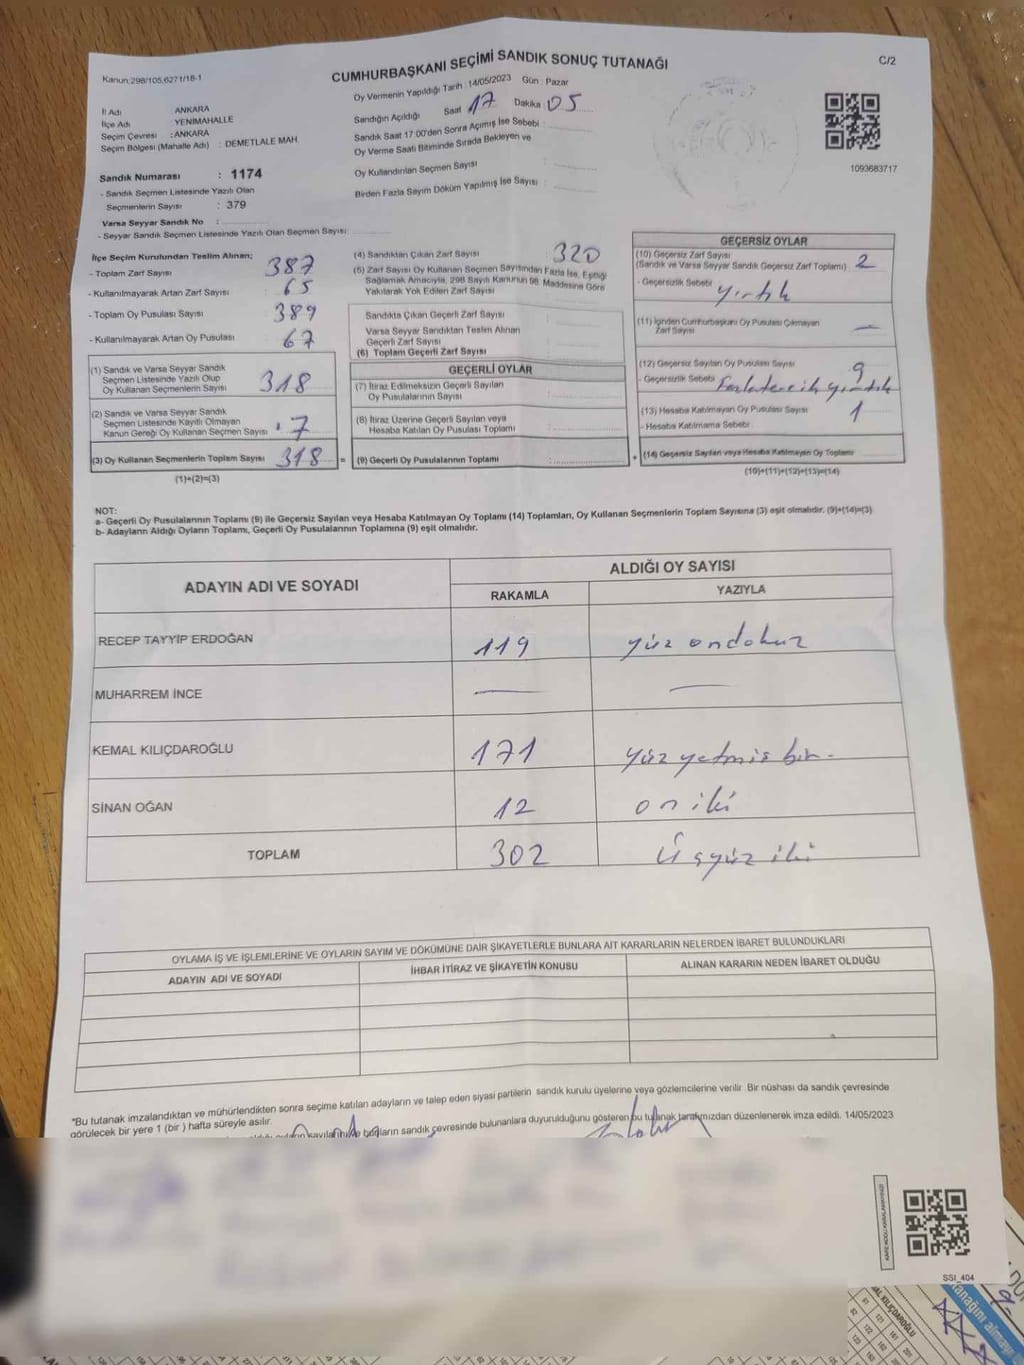 Kanun:298/105,6271/18-1
CUMHURBAŞKANI SEÇİMİ SANDIK SONUÇ TUTANAĞI
C/2
İl Adı : ANKARA
İlçe Adı : YENİMAHALLE
Seçim Çevresi : ANKARA
Seçim Bölgesi (Mahalle Adı) : DEMETLALE MAH
Sandık Numarası : 1174
- Sandık Seçmen Listesinde Yazılı Olan
Seçmenlerin Sayısı : 379
Varsa Seyyar Sandık No :
- Seyyar Sandık Seçmen Listesinde Yazılı Olan Seçmen Sayısı:
Oy Vermenin Yapıldığı Tarih : 14/05/2023 Gün : Pazar
Sandığın Açıldığı Saat 17 Dakika 05
Sandık Saat 17:00'den Sonra Açımış İse Sebebi :
Oy Verme Saati Bitiminde Sırada Bekleyen ve
Oy Kullandırılan Seçmen Sayısı :
Birden Fazla Sayım Döküm Yapılmış İse Sayısı :
1093683717
İlçe Seçim Kurulundan Teslim Alınan;
- Toplam Zarf Sayısı 387
- Kullanılmayarak Artan Zarf Sayısı 65
- Toplam Oy Pusulası Sayısı 389
- Kullanılmayarak Artan Oy Pusulası 67
(1) Sandık ve Varsa Seyyar Sandık
Seçmen Listesinde Yazılı Olup
Oy Kullanan Seçmenlerin Sayısı 318
(2) Sandık ve Varsa Seyyar Sandık
Seçmen Listesinde Kayıtlı Olmayan
Kanun Gereği Oy Kullanan Seçmen Sayısı : 7
(3) Oy Kullanan Seçmenlerin Toplam Sayısı 318
(1)+(2)=(3)
(4) Sandıktan Çıkan Zarf Sayısı 320
(5) Zarf Sayısı Oy Kullanan Seçmen Sayısından Fazla İse, Eşitliği
Sağlamak Amacıyla, 298 Sayılı Kanunun 98. Maddesine Göre
Yakılarak Yok Edilen Zarf Sayısı
Sandıkta Çıkan Geçerli Zarf Sayısı :
Varsa Seyyar Sandıktan Teslim Alınan
Geçerli Zarf Sayısı :
(6) Toplam Geçerli Zarf Sayısı :
GEÇERLİ OYLAR
(7) İtiraz Edilmeksizin Geçerli Sayılan
Oy Pusulalarının Sayısı :
(8) İtiraz Üzerine Geçerli Sayılan veya
Hesaba Katılan Oy Pusulası Toplamı :
= (9) Geçerli Oy Pusulalarının Toplamı :
GEÇERSİZ OYLAR
(10) Geçersiz Zarf Sayısı
(Sandık ve Varsa Seyyar Sandık Geçersiz Zarf Toplamı) 2
- Geçersizlik Sebebi yırtık
(11) İçinden Cumhurbaşkanı Oy Pusulası Çıkmayan
Zarf Sayısı —
(12) Geçersiz Sayılan Oy Pusulası Sayısı 9
- Geçersizlik Sebebi yırtık
(13) Hesaba Katılmayan Oy Pusulası Sayısı 1
- Hesaba Katılmama Sebebi
+ (14) Geçersiz Sayılan veya Hesaba Katılmayan Oy Toplamı
(10)+(11)+(12)+(13)=(14)
NOT:
a- Geçerli Oy Pusulalarının Toplamı (9) ile Geçersiz Sayılan veya Hesaba Katılmayan Oy Toplamı (14) Toplamları, Oy Kullanan Seçmenlerin Toplam Sayısına (3) eşit olmalıdır. (9)+(14)=(3)
b- Adayların Aldığı Oyların Toplamı, Geçerli Oy Pusulalarının Toplamına (9) eşit olmalıdır.
ADAYIN ADI VE SOYADI
ALDIĞI OY SAYISI
RAKAMLA YAZIYLA
RECEP TAYYİP ERDOĞAN 119 yüz ondokuz
MUHARREM İNCE — —
KEMAL KILIÇDAROĞLU 171 yüz yetmis bir
SİNAN OĞAN 12 on iki
TOPLAM 302 Üçyüz iki
OYLAMA İŞ VE İŞLEMLERİNE VE OYLARIN SAYIM VE DÖKÜMÜNE DAİR ŞİKAYETLERLE BUNLARA AİT KARARLARIN NELERDEN İBARET BULUNDUKLARI
ADAYIN ADI VE SOYADI İHBAR İTİRAZ VE ŞİKAYETİN KONUSU ALINAN KARARIN NEDEN İBARET OLDUĞU
*Bu tutanak imzalandıktan ve mühürlendikten sonra seçime katılan adayların ve talep eden siyasi partilerin sandık kurulu üyelerine veya gözlemcilerine verilir. Bir nüshası da sandık çevresinde
görülecek bir yere 1 (bir ) hafta süreyle asılır.
bunların sandık çevresinde bulunanlara duyurulduğunu gösteren bu tutanak tarafımızdan düzenlenerek imza edildi. 14/05/2023
SSI_404
KILIÇDAROĞLU